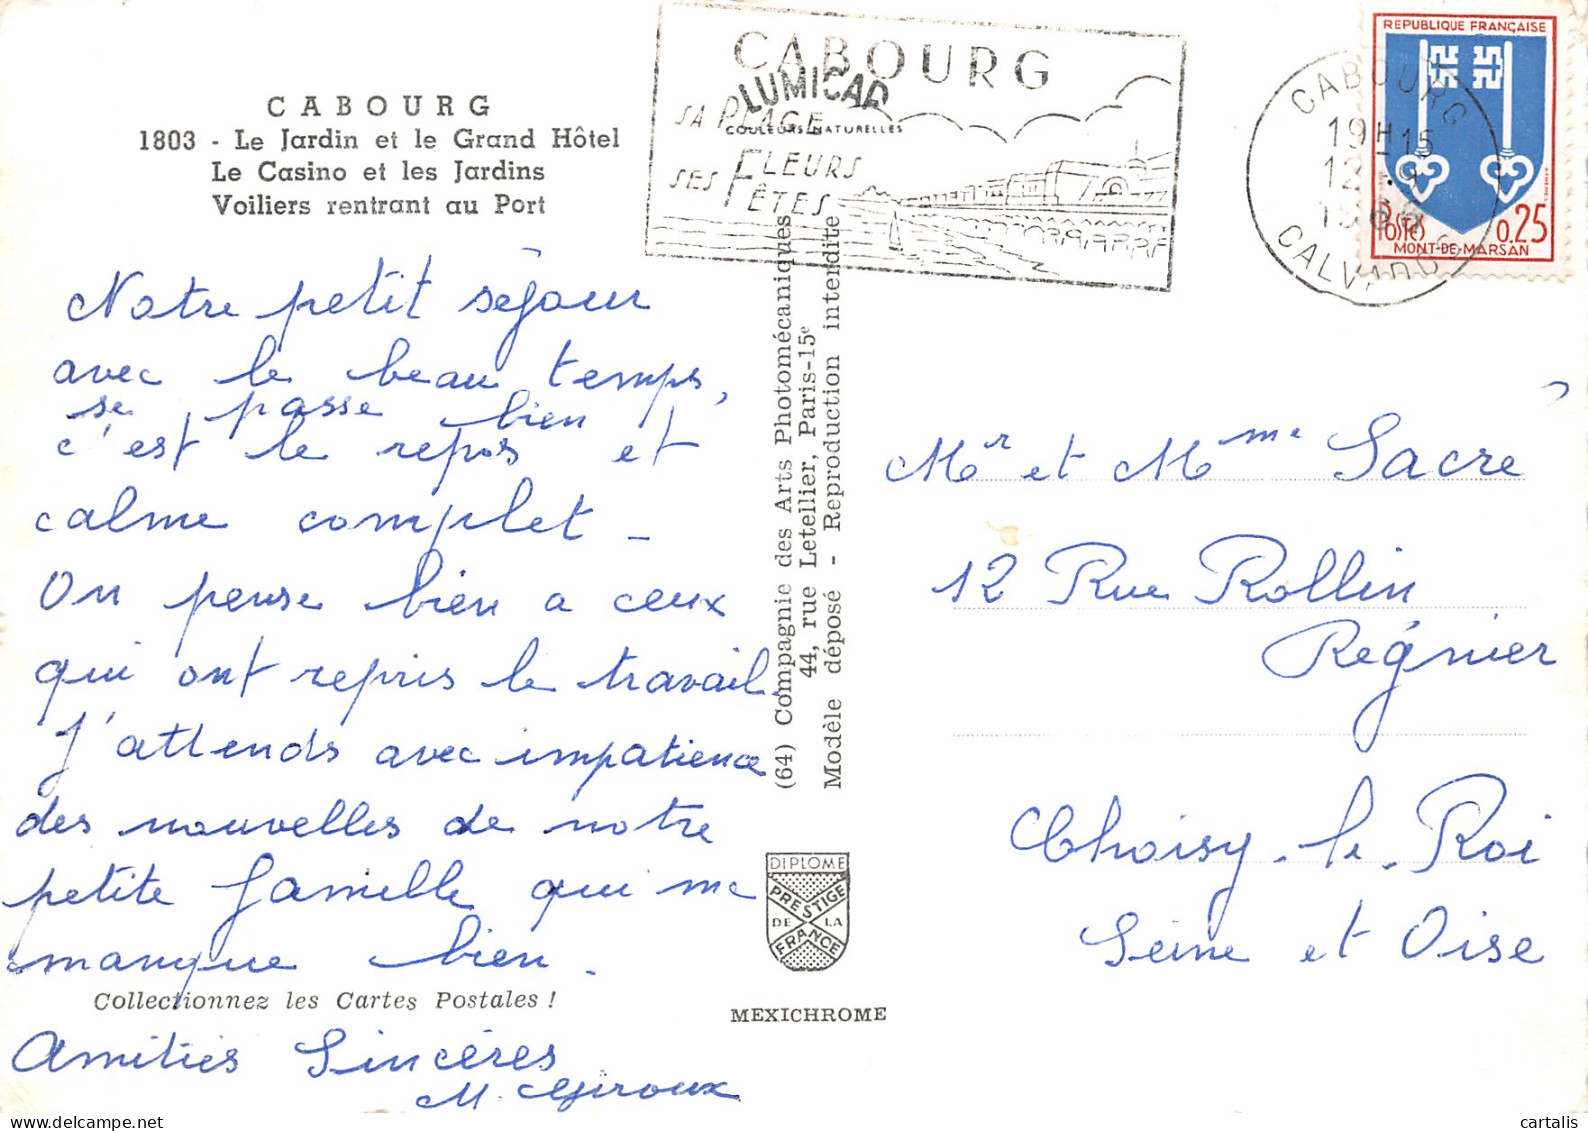 CABOURG
1803 - Le Jardin et le Grand Hôtel
Le Casino et les Jardins
Voiliers rentrant au Port
Notre petit séjour
avec le beau temps,
se passe bien
c'est le repos et
calme complet _
On pense bien a ceux
qui ont repris le travail.
J'attends avec impatience
des nouvelles de notre
petite famille qui me
manque bien _
Collectionnez les Cartes Postales !
Amitiés Sincères
M. Giroux
CABOURG
LUMICAP
SA PLAGE
COULEURS NATURELLES
SES FLEURS
FÊTES
(64) Compagnie des Arts Photomécaniques
44, rue Letellier, Paris-15e
Modèle déposé - Reproduction interdite
DIPLOME
PRESTIGE
DE LA
FRANCE
MEXICHROME
REPUBLIQUE FRANÇAISE
POSTES 0,25
MONT-DE-MARSAN
CABOURG
19H15
12-9
CALVADOS
Mr et Mme Sacré
12 Rue Rollin
Régnier
Choisy-le-Roi
Seine et Oise
cartalis
www.delcampe.net